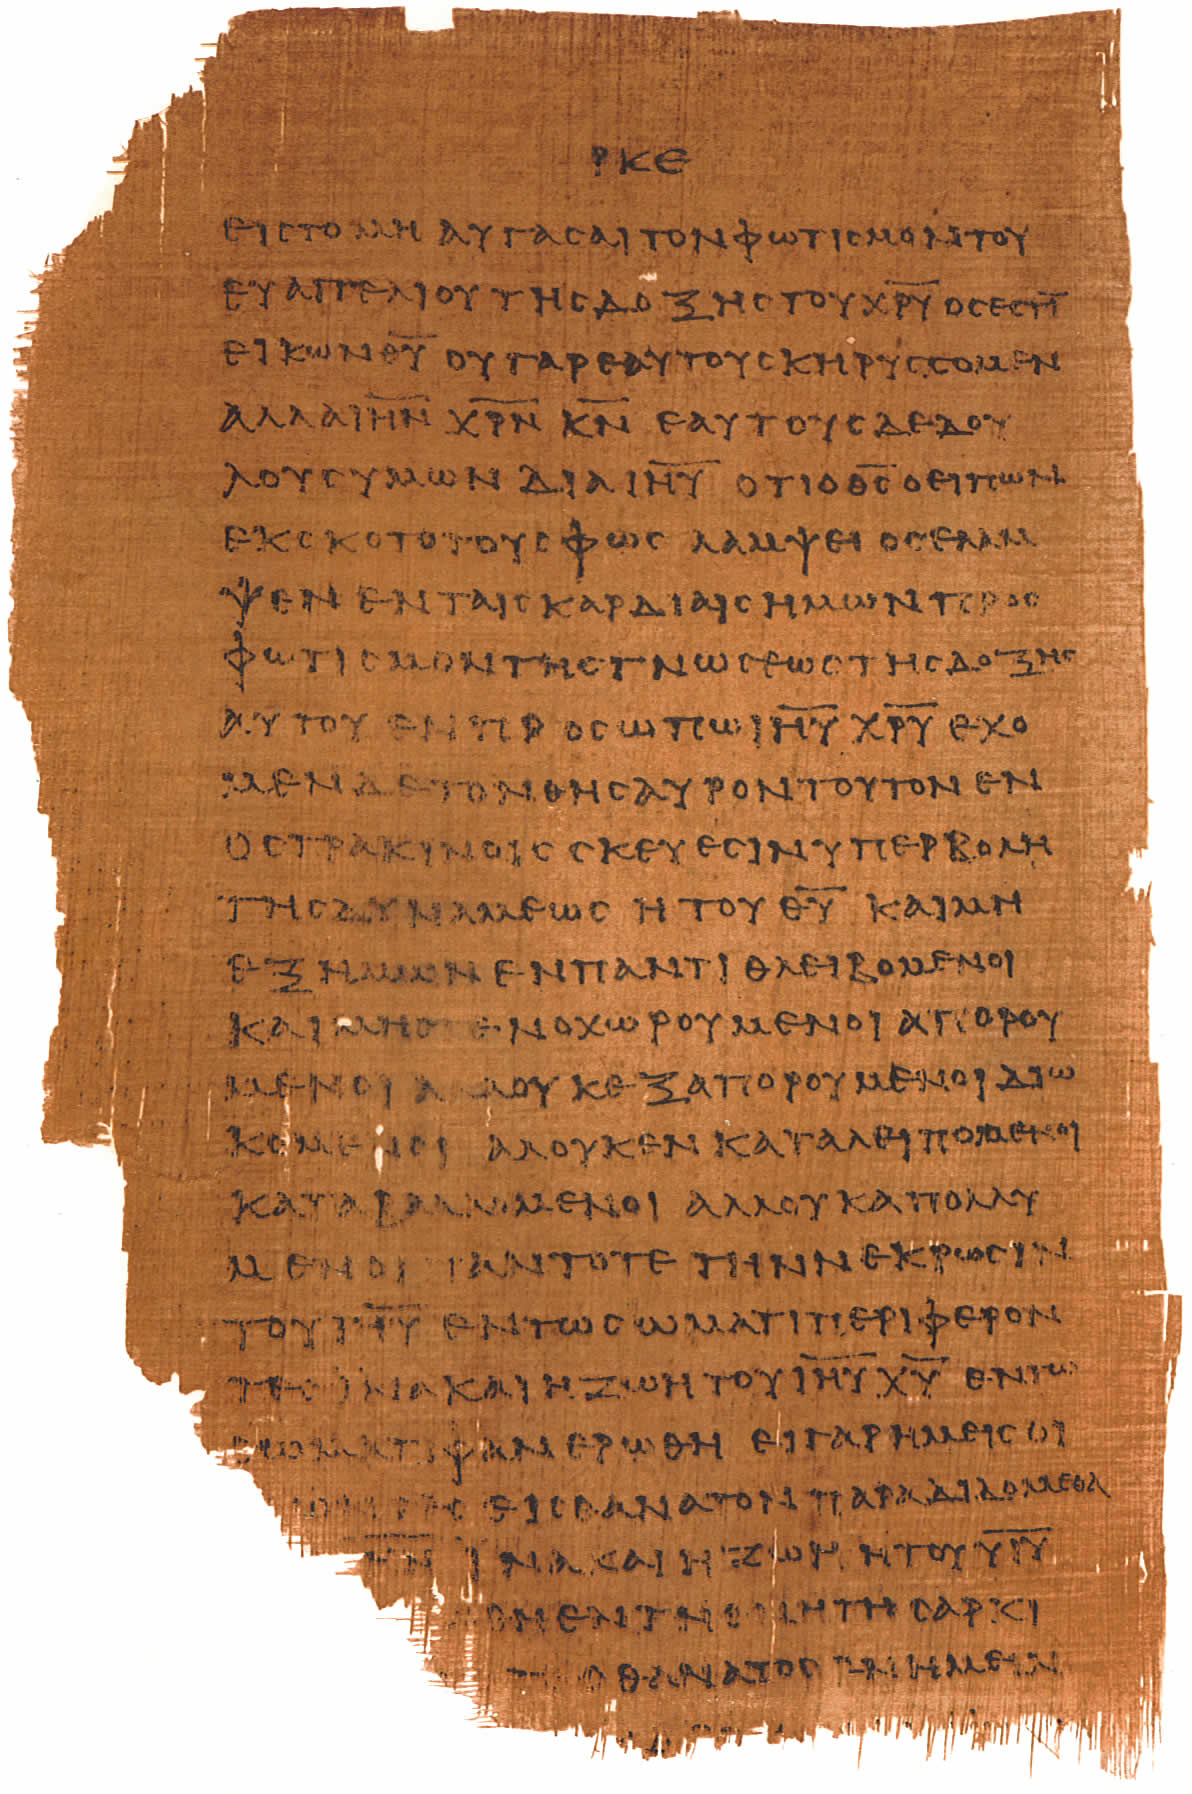 ΡΚΕ
ΕΙϹΤΟΜΗ ΑΥΓΑϹΑΙ ΤΟΝΦΩΤΙϹΜΟΝΤΟΥ
ΕΥΑΓΓΕΛΙΟΥ ΤΗϹΔΟΞΗϹ ΤΟΥ Χ̅Ρ̅Υ̅ ΟϹΕϹΤΙ̅
ΕΙΚΩΝ Θ̅Υ̅ ΟΥ ΓΑΡ ΕΑΥΤΟΥϹ ΚΗΡΥϹϹΟΜΕΝ
ΑΛΛΑ Ι̅Η̅Ν̅ Χ̅Ρ̅Ν̅ Κ̅Ν̅ ΕΑΥΤΟΥϹ ΔΕ ΔΟΥ
ΛΟΥϹ ΥΜΩΝ ΔΙΑ Ι̅Η̅Υ̅ ΟΤΙ Ο Θ̅Ϲ̅ Ο ΕΙΠΩΝ
ΕΚ ϹΚΟΤΟΤΟΥϹ ΦΩϹ ΛΑΜΨΕΙ ΟϹ ΕΛΑΜ
ΨΕΝ ΕΝ ΤΑΙϹ ΚΑΡΔΙΑΙϹ ΗΜΩΝ ΠΡΟϹ
ΦΩΤΙϹΜΟΝ ΤΗϹ ΓΝΩϹΕΩϹ ΤΗϹ ΔΟΞΗϹ
ΑΥΤΟΥ ΕΝ ΠΡΟϹΩΠΩ Ι̅Η̅Υ̅ Χ̅Ρ̅Υ̅ ΕΧΟ
ΜΕΝ ΔΕ ΤΟΝ ΘΗϹΑΥΡΟΝ ΤΟΥΤΟΝ ΕΝ
ΟϹΤΡΑΚΙΝΟΙϹ ϹΚΕΥΕϹΙΝ ΥΠΕΡΒΟΛΗ
ΤΗϹ ΔΥΝΑΜΕΩϹ Η ΤΟΥ Θ̅Υ̅ ΚΑΙ ΜΗ
ΕΞ ΗΜΩΝ ΕΝ ΠΑΝΤΙ ΘΛΕΙΒΟΜΕΝΟΙ
ΚΑΙ ΜΗ ϹΤΕΝΟΧΩΡΟΥΜΕΝΟΙ ΑΠΟΡΟΥ
ΜΕΝΟΙ ΑΛΛΟΥΚ ΕΞΑΠΟΡΟΥΜΕΝΟΙ ΔΙΩ
ΚΟΜΕΝΟΙ ΑΛΟΥΚ ΕΝΚΑΤΑΛΕΙΠΟΜΕΝΟΙ
ΚΑΤΑΒΑΛΛΟΜΕΝΟΙ ΑΛΛΟΥΚ ΑΠΟΛΛΥ
ΜΕΝΟΙ ΠΑΝΤΟΤΕ ΤΗΝ ΝΕΚΡΩϹΙΝ
ΤΟΥ Ι̅Η̅Υ̅ ΕΝ ΤΩ ϹΩΜΑΤΙ ΠΕΡΙΦΕΡΟΝ
ΤΕϹ ΙΝΑ ΚΑΙ Η ΖΩΗ ΤΟΥ Ι̅Η̅Υ̅ Χ̅Υ̅ ΕΝ ΤΩ
ϹΩΜΑΤΙ ΦΑΝΕΡΩΘΗ ΕΙ ΓΑΡ ΗΜΕΙϹ ΟΙ
ΕϹ ΕΙϹ ΘΑΝΑΤΟΝ ΠΑΡΑΔΙΔΟΜΕΘΑ
Η̅Ν̅ ΙΝΑ ΚΑΙ Η ΖΩΗ Η ΤΟΥ Υ̅Ι̅Υ̅
ΕΝ ΤΗ ΤΗ ϹΑΡΚΙ
Ο ΘΑΝΑΤΟϹ ΕΝ ΗΜΕΙΝ